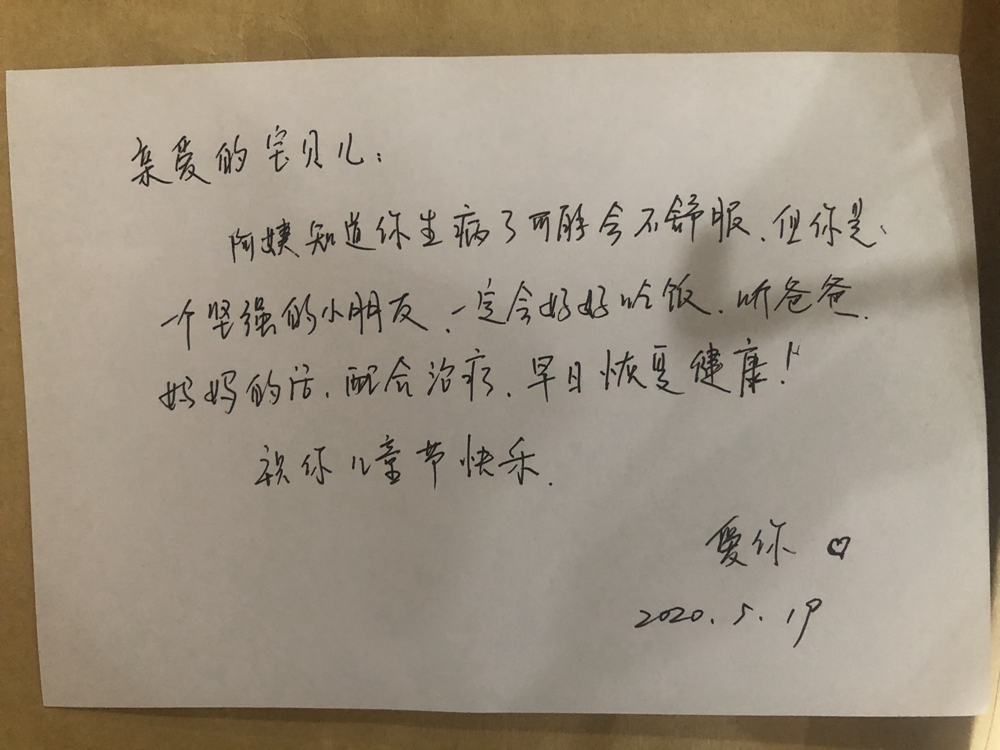 亲爱的宝贝儿:
阿姨知道你生病了可能会不舒服、但你是
一个坚强的小朋友、一定会好好吃饭、听爸爸、
妈妈的话、配合治疗、早日恢复健康!
祝你儿童节快乐.
爱你 ♡
2020.5.19